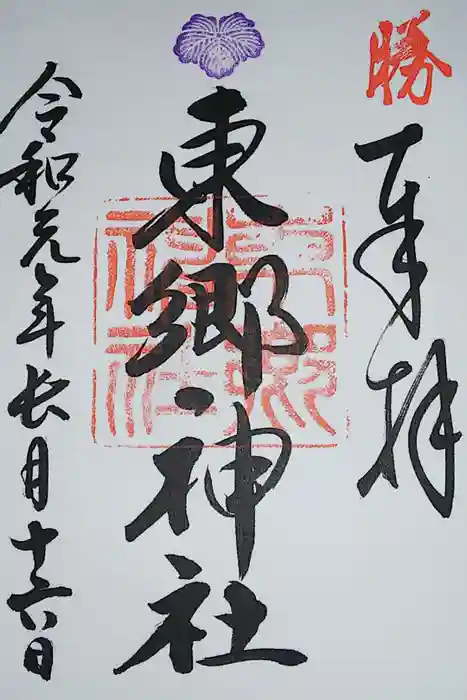 勝
奉拝
東郷神社
東郷神社
令和元年長月十六日